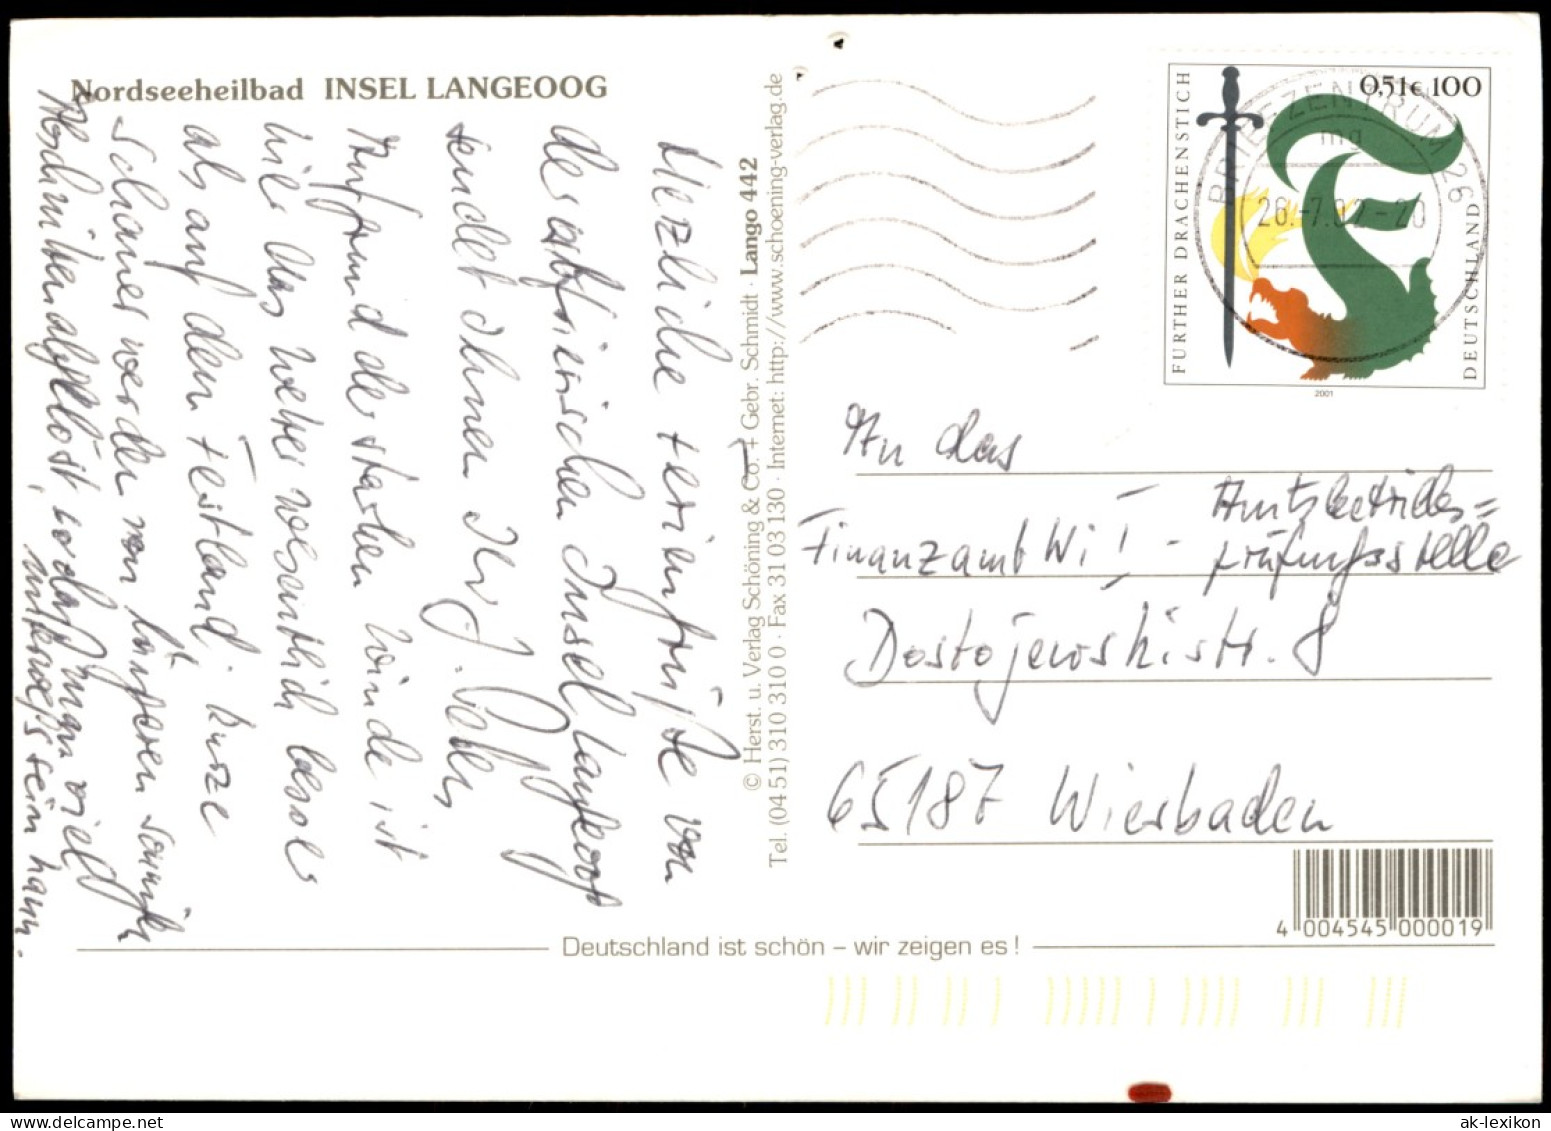 Nordseeheilbad INSEL LANGEOOG
Herzliche Feriengrüße von
der ostfriesischen Insel Langeoog
sendet Ihnen Ihr J.
Aufgrund der starken Winde ist
hier das Wetter wesentlich besser
als auf dem Festland; kurze
Schauer werden von längeren sonnigen
Abschnitten abgelöst, so daß man viel
unterwegs sein kann.
© Herst. u. Verlag Schöning & Co. + Gebr. Schmidt · Lango 442
Tel. (04 51) 310 310 0 · Fax 31 03 130 · Internet: http://www.schoening-verlag.de
FURTHER DRACHENSTICH
0,51€ 100
DEUTSCHLAND
2001
BRIEFZENTRUM 26
mg
26.-7.02-20
An das
Finanzamt WI I - Amtsbetriebs=
prüfungsstelle
Dostojewskistr. 8
65187 Wiesbaden
4 004545 000019
Deutschland ist schön – wir zeigen es !
ak-lexikon